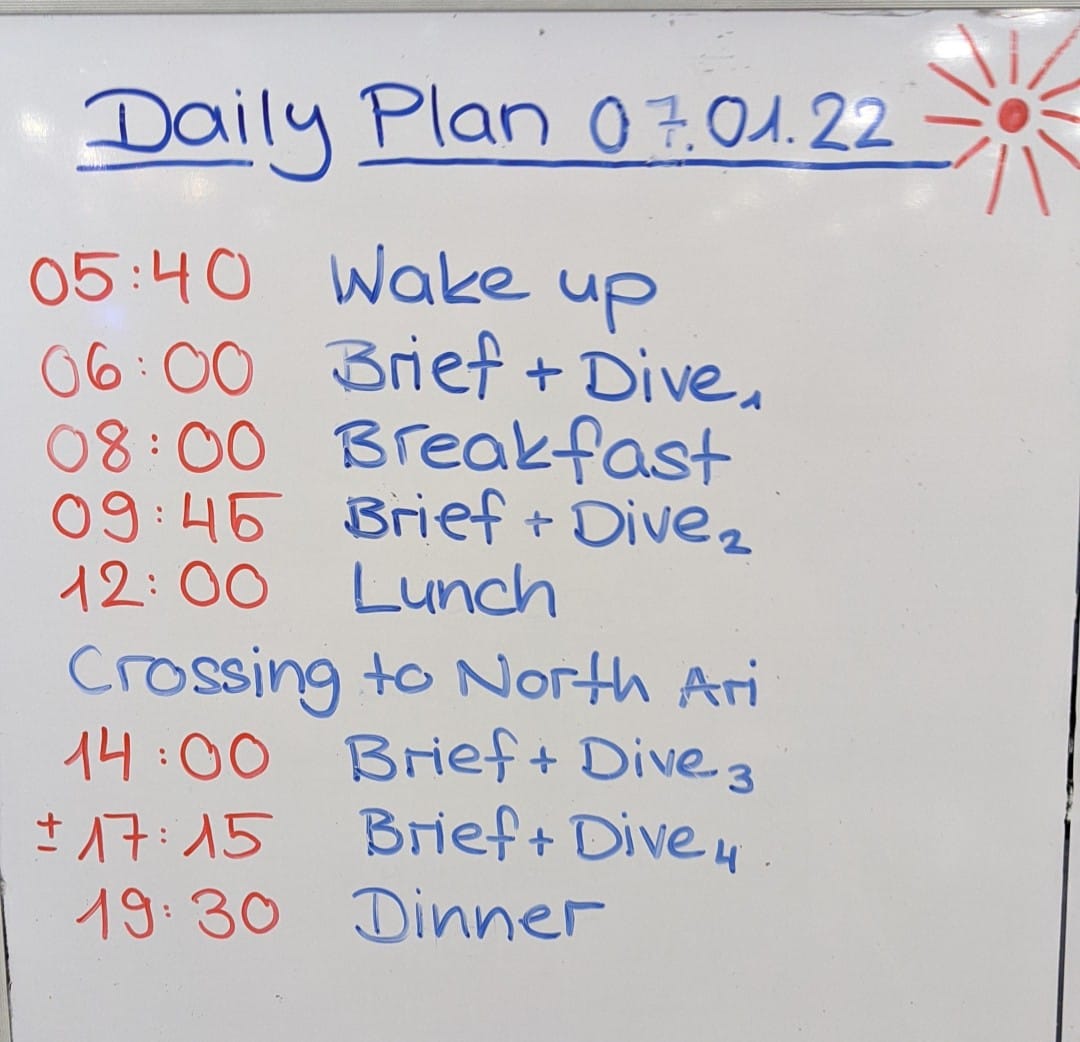 Daily Plan 07.01.22
05:40 Wake up
06:00 Brief + Dive 1
08:00 Breakfast
09:45 Brief + Dive 2
12:00 Lunch
Crossing to North Ari
14:00 Brief + Dive 3
± 17:15 Brief + Dive 4
19:30 Dinner